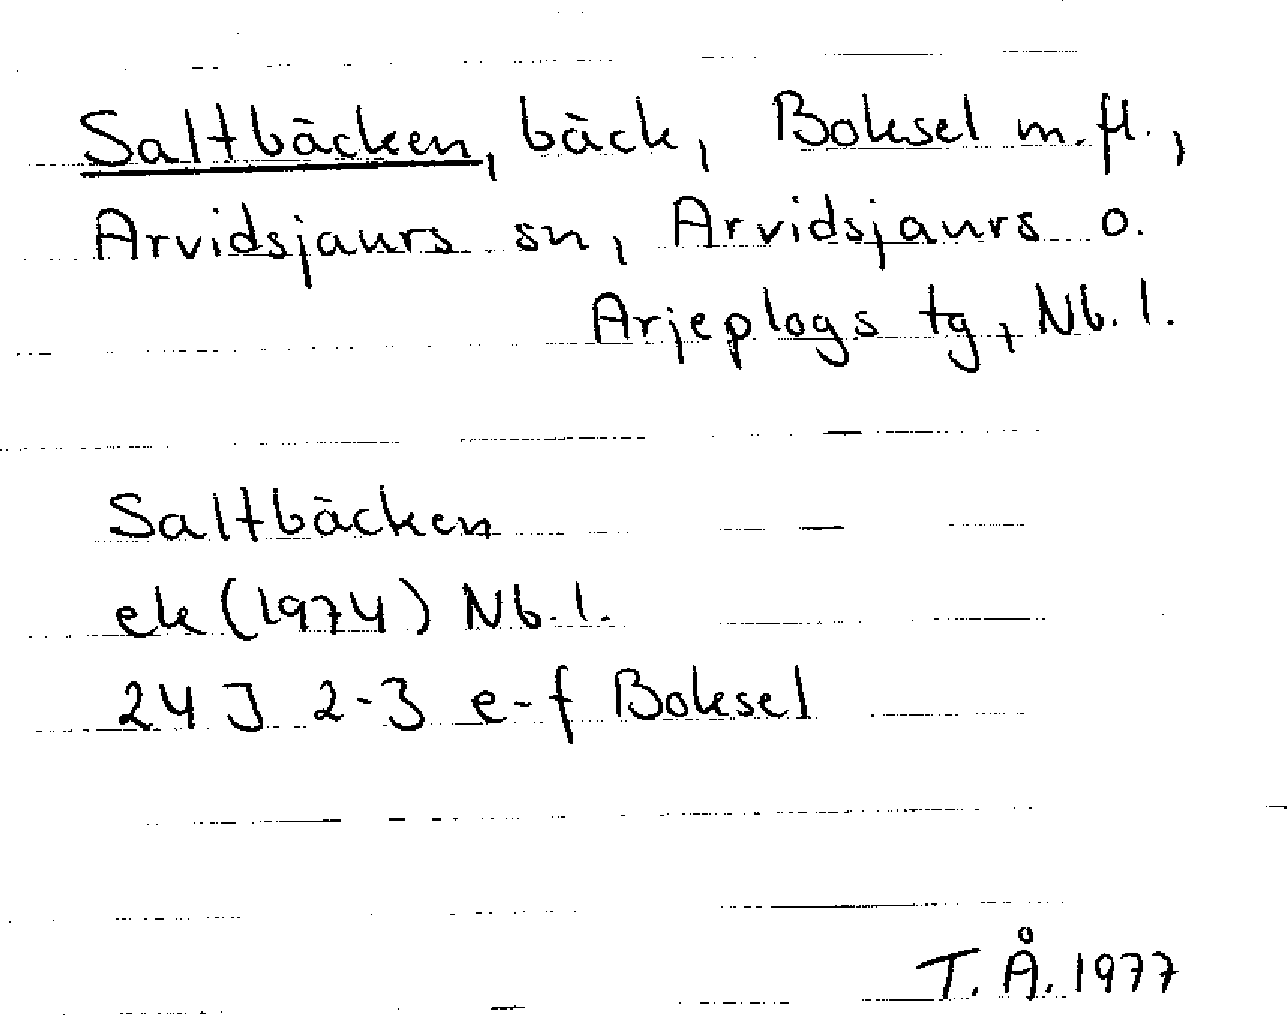 Saltbäcken, bäck, Boksel m.fl.,
Arvidsjaurs sn, Arvidsjaurs o.
Arjeplogs tg, Nb.l.
Saltbäcken
ek (1974) Nb.l.
24J 2-3 e-f Boksel
T.Å. 1977